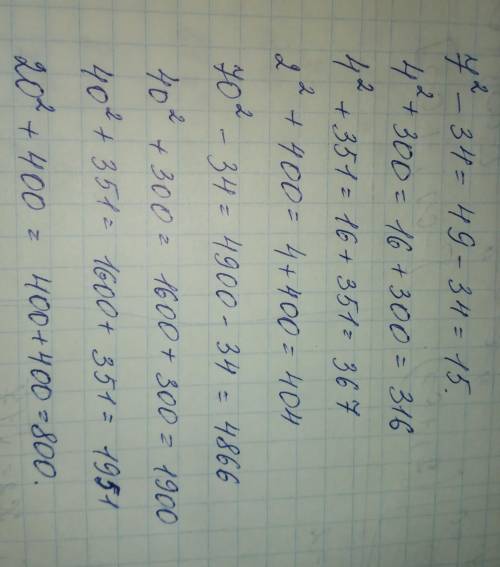 7² - 34 = 49 - 34 = 15.
4² + 300 = 16 + 300 = 316
4² + 351 = 16 + 351 = 367
2² + 400 = 4 + 400 = 404
70² - 34 = 4900 - 34 = 4866
40² + 300 = 1600 + 300 = 1900
40² + 351 = 1600 + 351 = 1951
20² + 400 = 400 + 400 = 800.